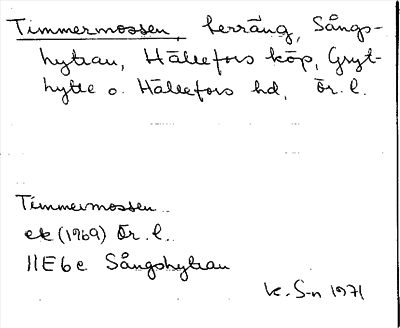 Timmermossen, terräng, Sångs-
hyttan, Hällefors köp, Gryt-
hytte o. Hällefors hd, Ör. l.
Timmermossen
ek (1969) Ör. l.
11E6e Sångshyttan
K. S-n 1971